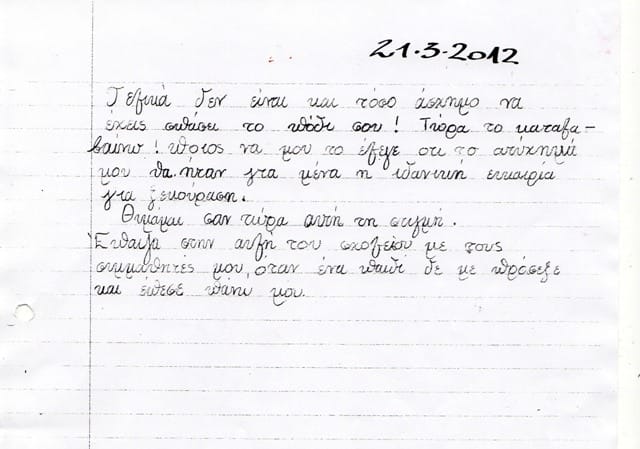 21·3·2012
Τελικά δεν είναι και τόσο άσχημο να
έχεις σπάσει το πόδι σου! Τώρα το καταλα-
βαίνω! ποιος να μου το έλεγε οτι το ατύχημά
μου θα ήταν για μένα η ιδανική ευκαιρία
για ξεκούραση.
Θυμάμαι σαν τώρα αυτή τη στιγμή.
Έπαιζα στην αυλή του σχολείου με τους
συμμαθητές μου, όταν ένα παιδί δε με πρόσεξε
και έπεσε πάνω μου.